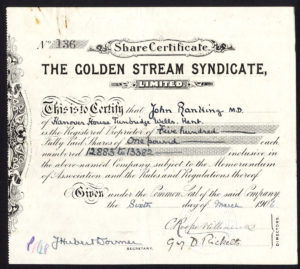 No. 136
Share Certificate.
THE GOLDEN STREAM SYNDICATE,
LIMITED.
This is to Certify that John Ranking M.D.
Hanover House Tunbridge Wells. Kent.
is the Registered Proprietor of Five hundred
Fully Paid Shares of One pound each
numbered 12883 to 13382 inclusive in
the above-named Company subject to the Memorandum
of Association and the Rules and Regulations thereof
Given under the Common Seal of the said Company
the Sixth day of March
J Hubert Dormer
SECRETARY.
DIRECTORS.